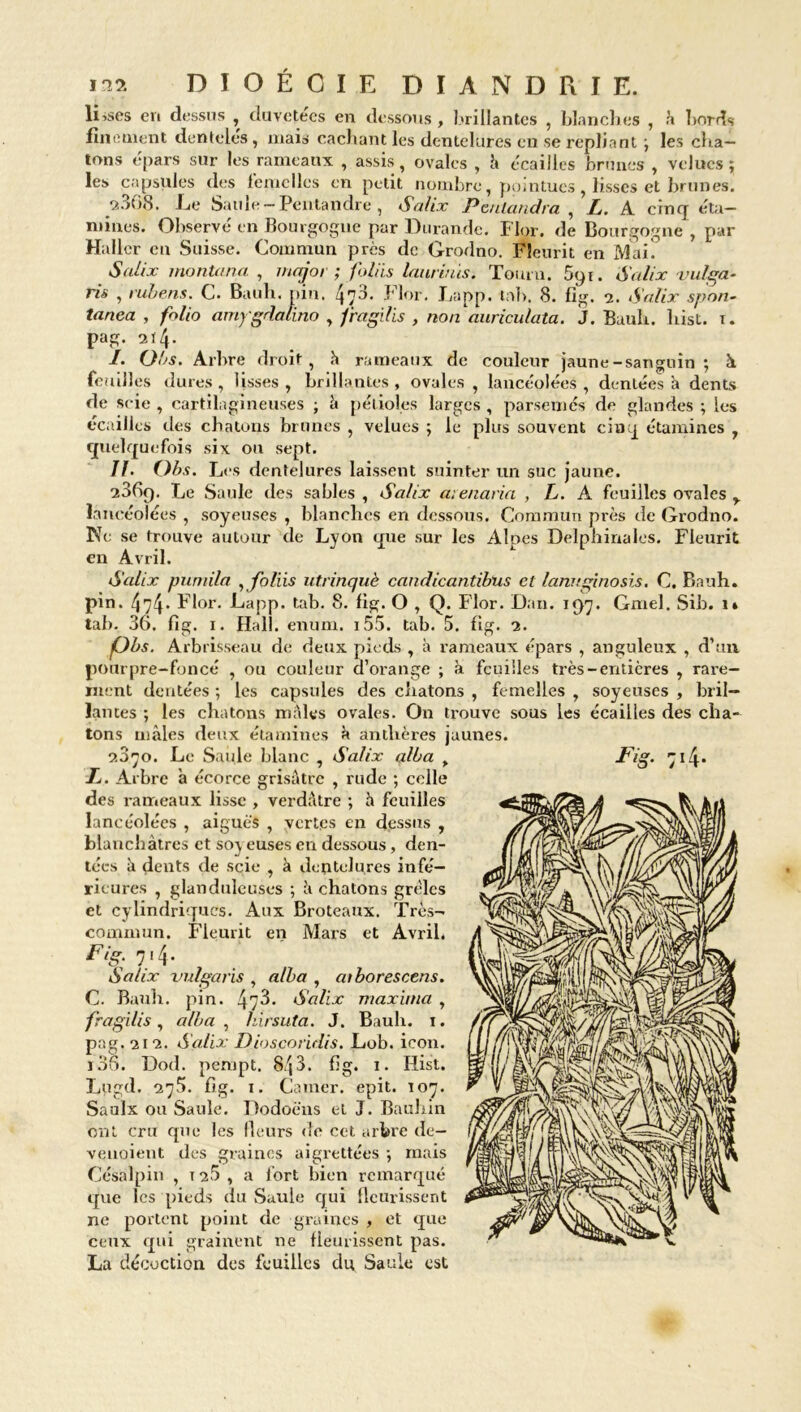 122 DIOÉCIE DIANDRIE.
lisses en dessus , duvetées en dessous , brillantes , blanches , à bords
finement dentelés , mais cachant les dentelures en se repliant ; les cha-
tons épars sur les rameaux , assis , ovales , à écailles brunes , velues ;
les capsules des femelles en petit nombre, pointues , lisses et brunes.
2368. Le Saule-Pentandre , Salix Pentandra , L. A cinq éta-
mines. Observé en Bourgogne par Durande. Flor. de Bourgogne , par
Haller en Suisse. Commun près de Grodno. Fleurit en Mai.
Salix montana , major ; foliis laurinis. Tourn. 591. Salix vulga-
ris , rubens. C. Bauh. pin. 473. Flor. Lapp. tab. 8. fig. 2. Salix spon-
tanea , folio amygdalino , fragilis , non auriculata. J. Bauh. hist. 1.
pag. 214.
I. Obs. Arbre droit , à rameaux de couleur jaune-sanguin ; à
feuilles dures , lisses , brillantes , ovales , lancéolées , dentées à dents
de scie , cartilagineuses ; à pétioles larges , parsemés de glandes ; les
écailles des chatons brunes , velues ; le plus souvent cinq étamines ,
quelquefois six ou sept.
II. Obs. Les dentelures laissent suinter un suc jaune.
2369. Le Saule des sables , Salix arenaria , L. A feuilles ovales ,
lancéolées , soyeuses , blanches en dessous. Commun près de Grodno.
Ne se trouve autour de Lyon que sur les Alpes Delphinales. Fleurit
en Avril.
Salix pumila , foliis utrinquè candicantibus et lanuginosis. C. Bauh.
pin. 474. Flor. Lapp. tab. 8. fig. O , Q. Flor. Dan. 197. Gmel. Sib. 1.
tab. 36. fig. 1. Hall. enum. 155. tab. 5. fig. 2.
Obs. Arbrisseau de deux pieds , à rameaux épars , anguleux , d'un
pourpre-foncé , ou couleur d'orange ; à feuilles très-entières , rare-
ment dentées ; les capsules des chatons , femelles , soyeuses , bril-
lantes ; les chatons mâles ovales. On trouve sous les écailles des cha-
tons mâles deux étamines à anthères jaunes.
2370. Le Saule blanc , Salix alba ,
L. Arbre à écorce grisâtre , rude ; celle
des rameaux lisse , verdâtre ; à feuilles
lancéolées , aiguës , vertes en dessus ,
blanchâtres et soyeuses en dessous , den-
tées à dents de scie , à dentelures infé-
rieures , glanduleuses ; à chatons grêles
et cylindriques. Aux Broteaux. Très-
commun. Fleurit en Mars et Avril.
Fig. 714.
Salix vulgaris , alba , arborescens.
C. Bauh. pin. 473. Salix maxima ,
fragilis , alba , hirsuta. J. Bauh. 1.
pag. 212. Salix Dioscoridis. Lob. icon.
136. Dod. pempt. 843. fig. 1. Hist.
Lugd. 275. fig. 1. Camer. epit. 107.
Saulx ou Saule. Dodoëns et J. Bauhin
ont cru que les fleurs de cet arbre de-
venoient des graines aigrettées ; mais
Césalpin , 125 , a fort bien remarqué
que les pieds du Saule qui fleurissent
ne portent point de graines , et que
ceux qui grainent ne fleurissent pas.
La décoction des feuilles du Saule est
Fig. 714.